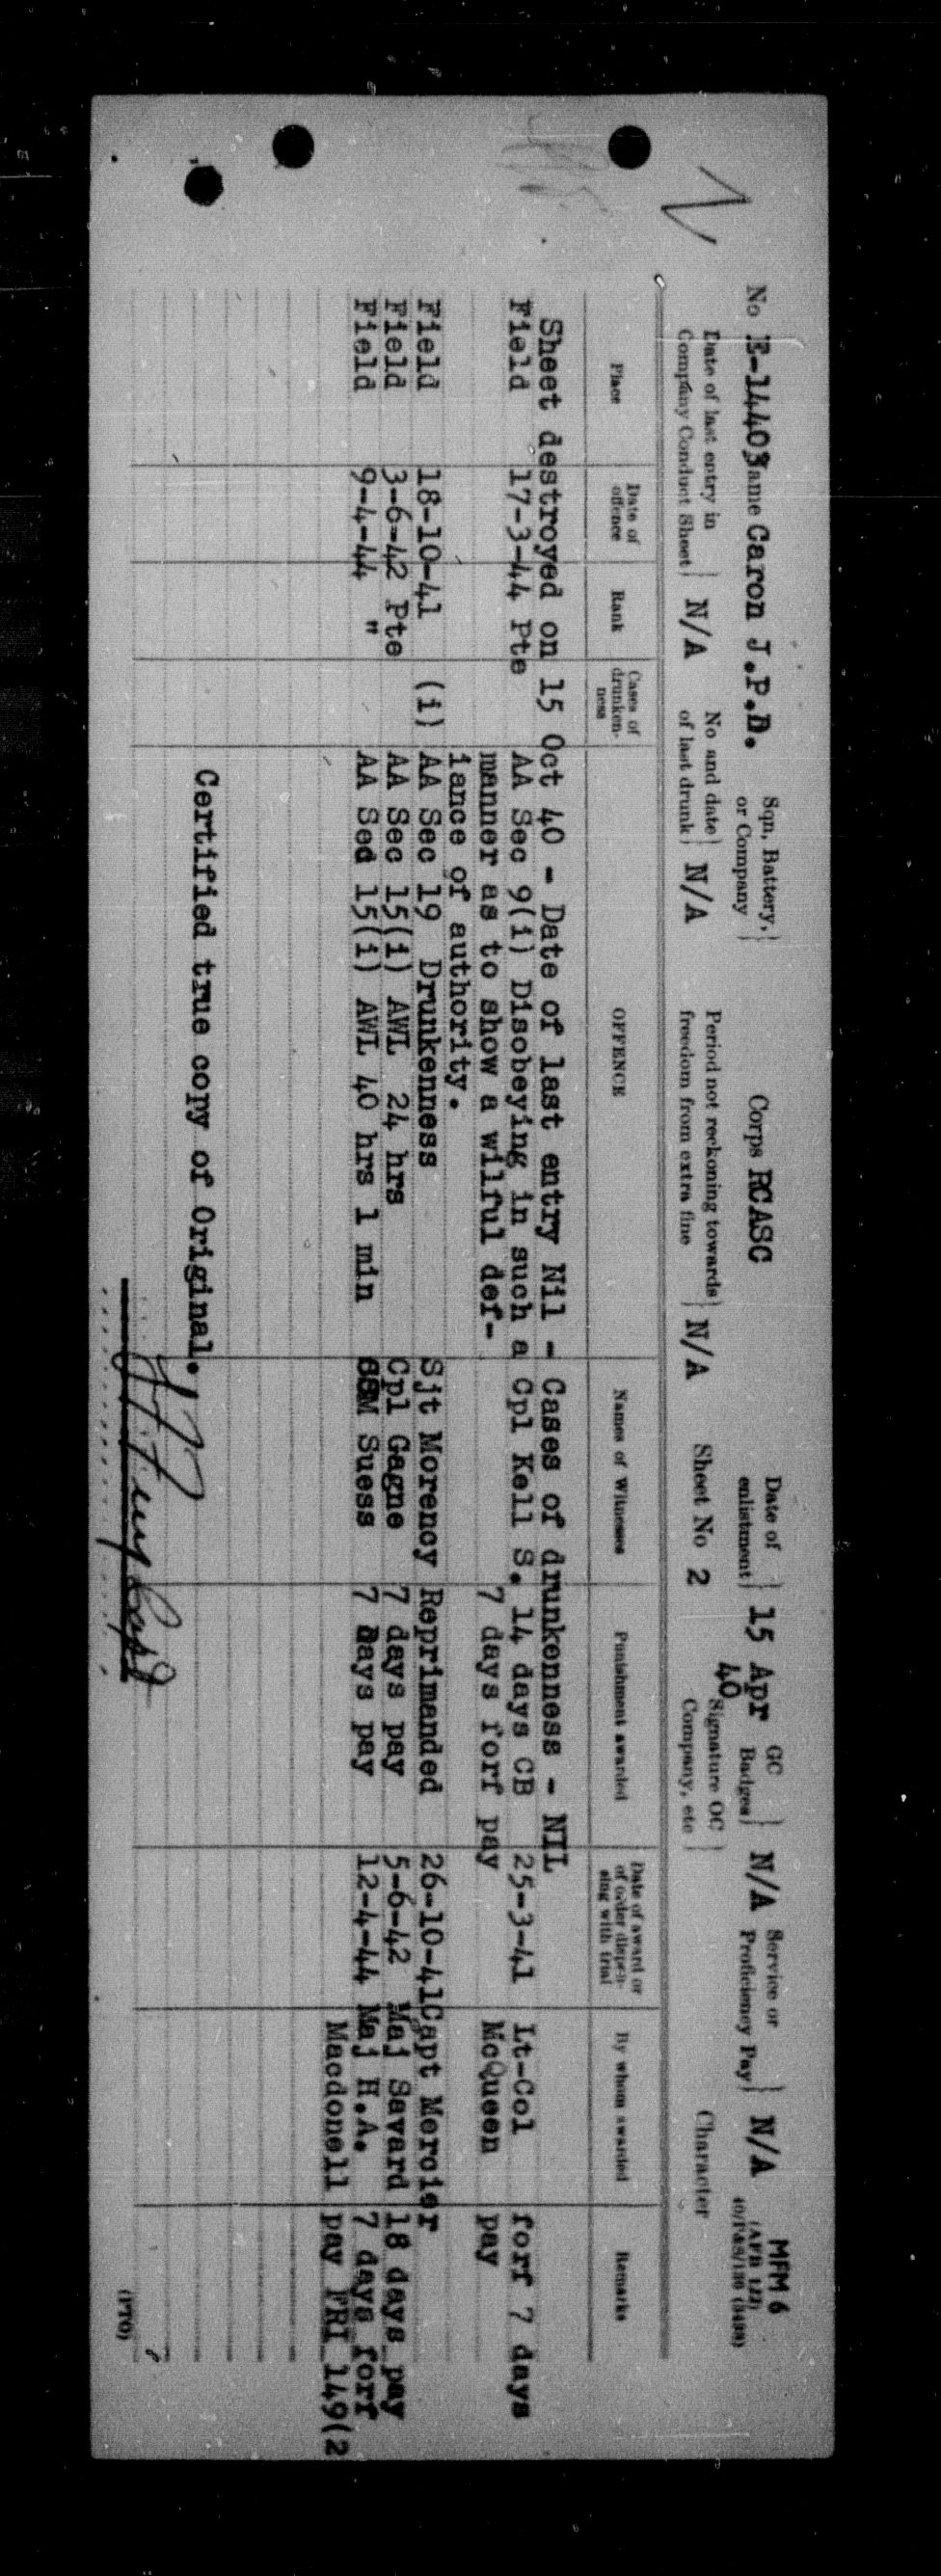 MFM 6
(AFB 122)
No E-14403 Name Caron J.P.D. Sqn, Battery, or Company } Corps RCASC Date of enlistment } 15 Apr 40 GC Badges } N/A Service or Proficiency Pay } N/A
Date of last entry in Company Conduct Sheet } N/A No and date of last drunk } N/A Period not reckoning towards freedom from extra fine } N/A Sheet No 2 Signature OC Company, etc } Character
Place Date of offence Rank Cases of drunken-ness OFFENCE Names of Witnesses Punishment awarded Date of award or of order dispen-sing with trial By whom awarded Remarks
Sheet destroyed on 15 Oct 40 - Date of last entry Nil - Cases of drunkenness - NIL
Field 17-3-44 Pte AA Sec 9(1) Disobeying in such a Cpl Kell S. 14 days CB 25-3-41 Lt-Col forf 7 days
manner as to show a wilful def- 7 days forf pay McQueen pay
iance of authority.
Field 18-10-41 (1) AA Sec 19 Drunkenness Sjt Morency Reprimanded 26-10-41 Capt Mercier
Field 3-6-42 Pte AA Sec 15(1) AWL 24 hrs Cpl Gagne 7 days pay 5-6-42 Maj Savard 18 days pay
Field 9-4-44 " AA Sec 15(1) AWL 40 hrs 1 min CSM Suess 7 days pay 12-4-44 Maj H.A. 7 days forf
Macdonell pay FRI 149(2
Certified true copy of Original.
(PTO)